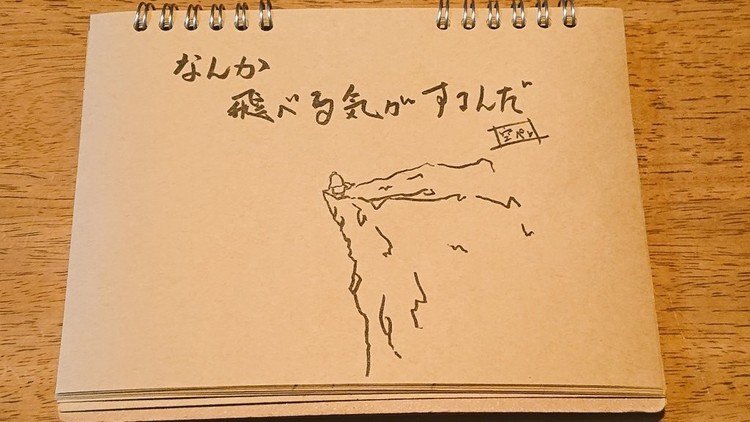 なんか
飛べる気がするんだ
空ペン